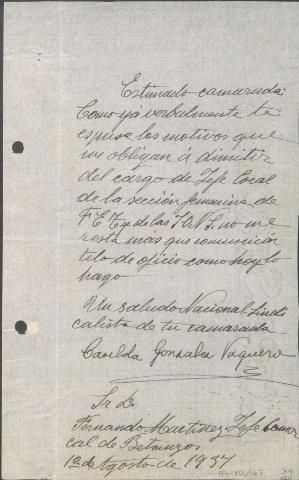 Estimado camarada:
Como yá verbalmente te
expuse los motivos que
me obligan á dimitir
del cargo de Jefe local
de la sección femenina de
F E T y de las J O N S, no me
resta mas que comunicár
telo de oficio como hoy lo
hago
Un saludo Nacional Sindi
calista de tu camarada
Casilda Gonzalez Vaquero
Sr D.
Fernando Martinez Jefe comar
cal de Betanzos
1º de Agosto de 1937